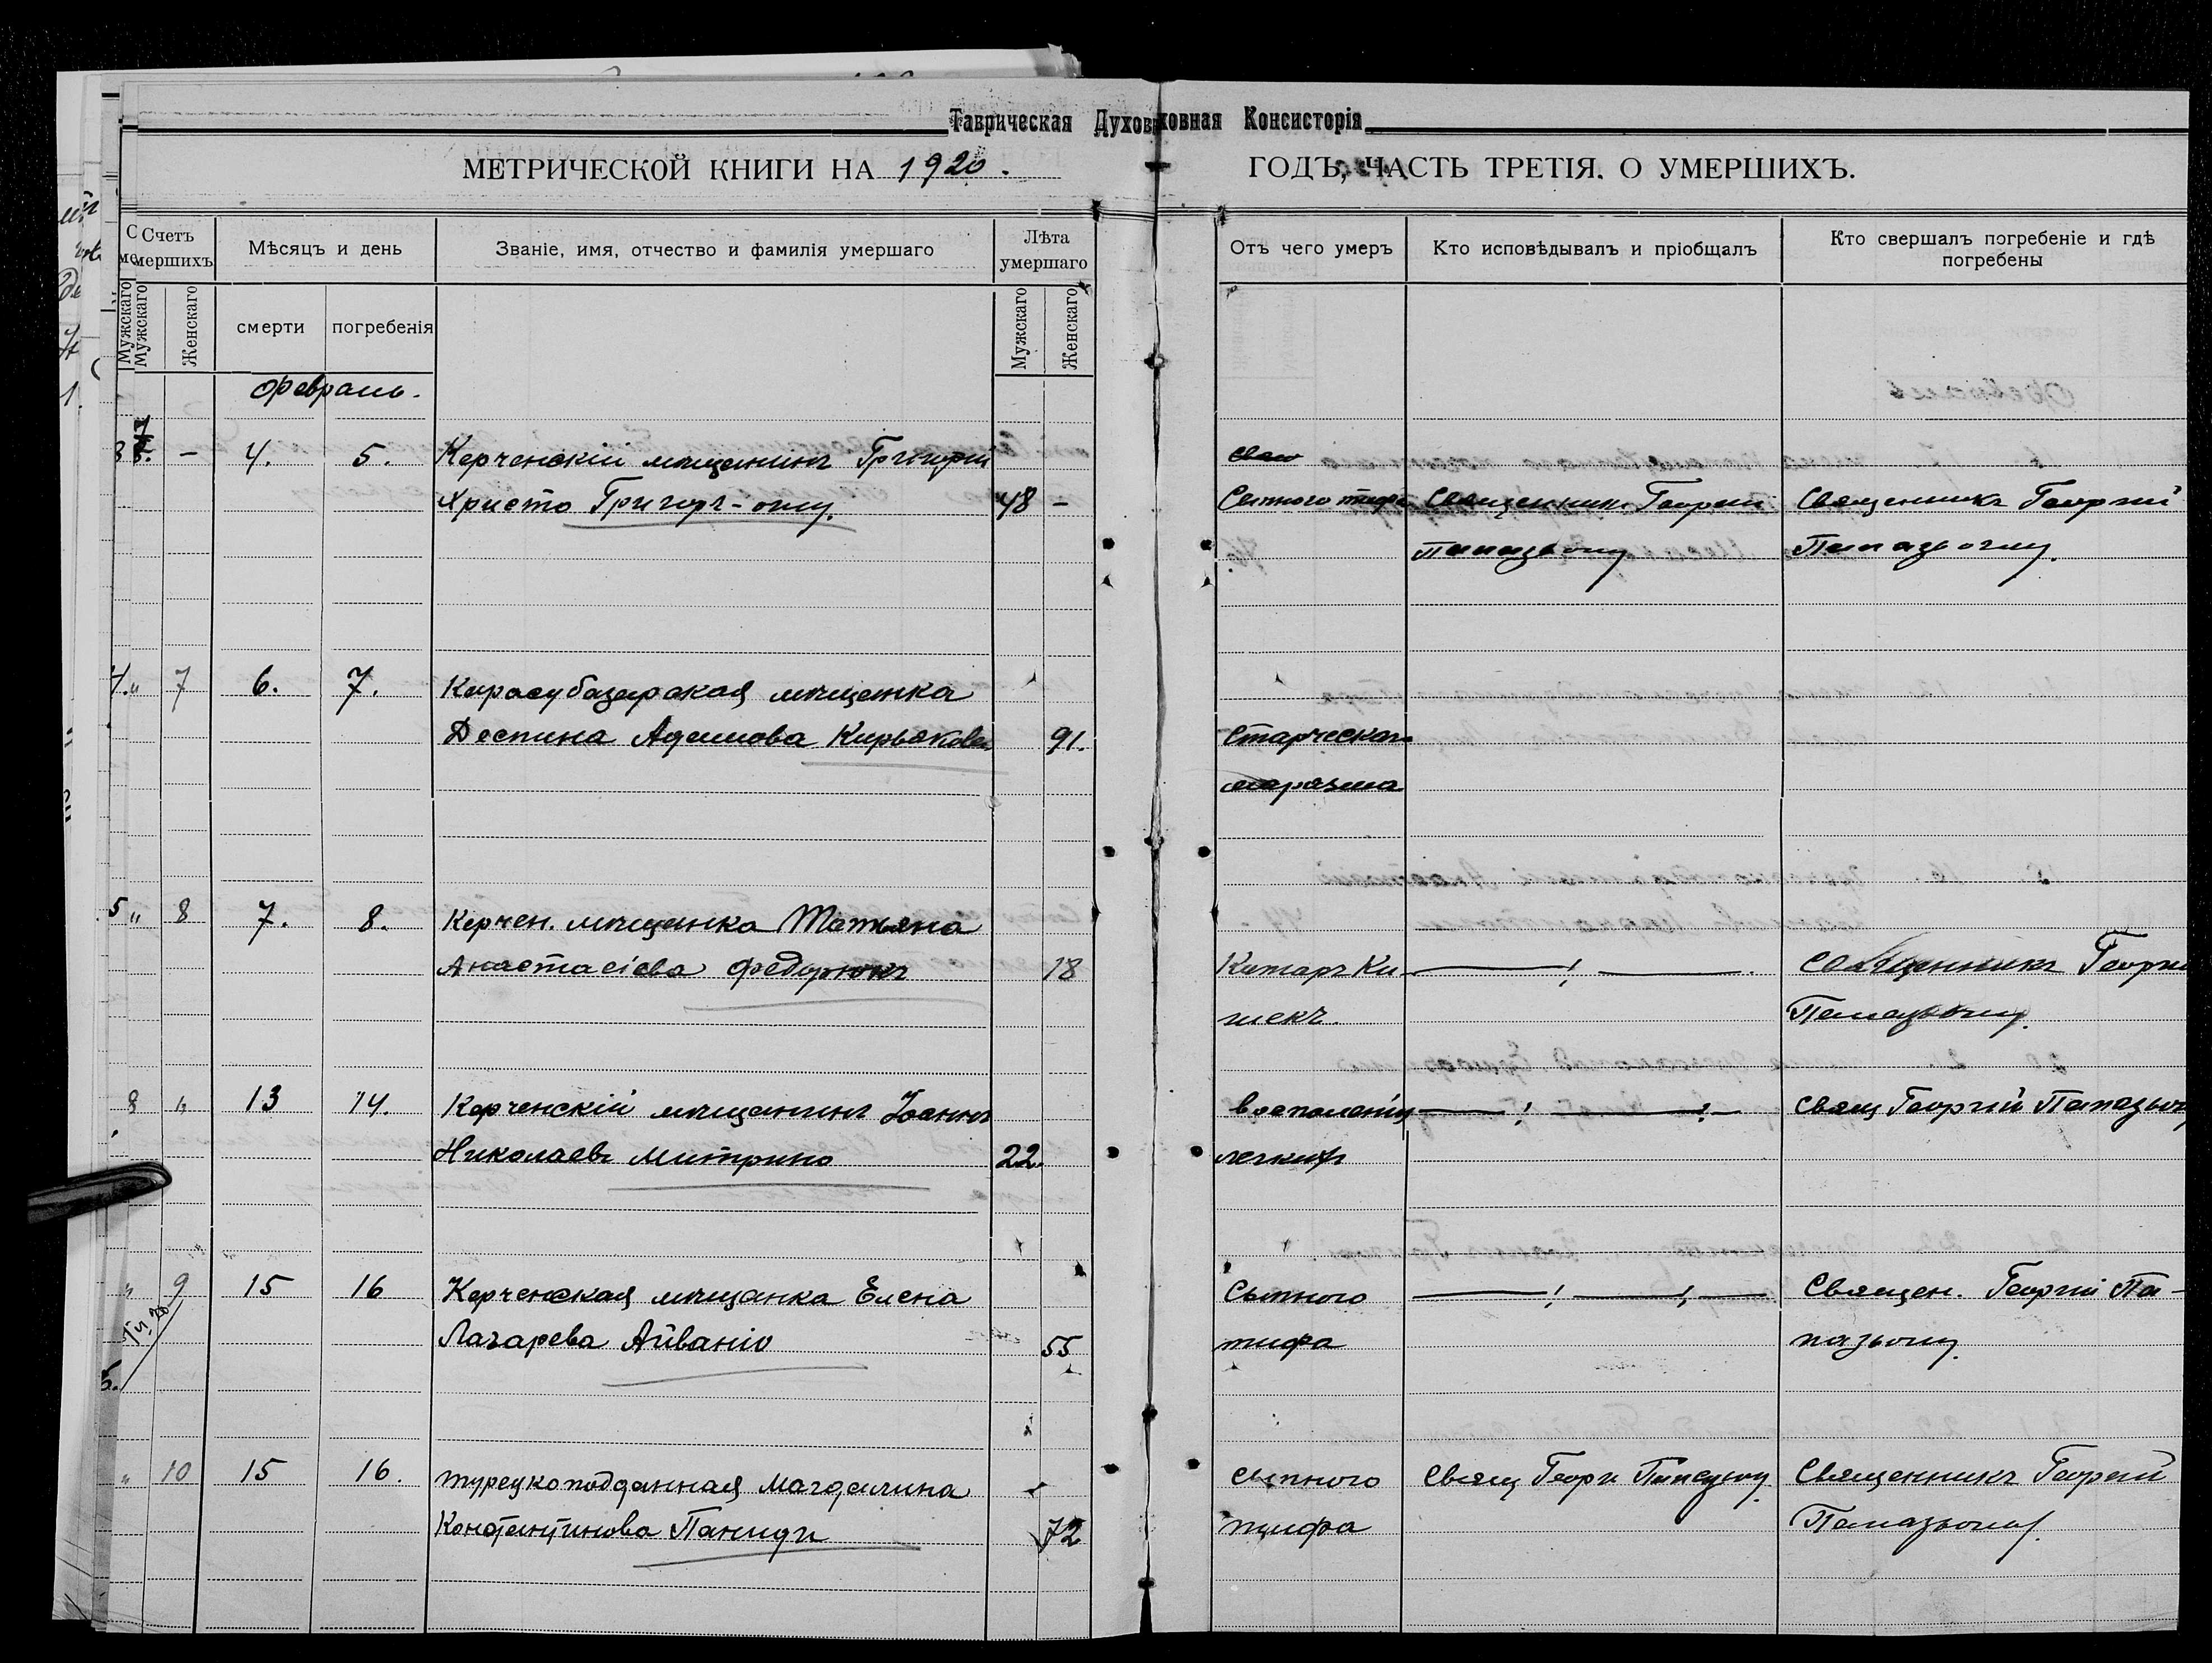 Таврическая Духовная Консисторія
МЕТРИЧЕСКОЙ КНИГИ НА 1920. ГОДЪ, ЧАСТЬ ТРЕТІЯ. О УМЕРШИХЪ.
Счетъ умершихъ
Мѣсяцъ и день
Званіе, имя, отчество и фамилія умершаго
Лѣта умершаго
Отъ чего умеръ
Кто исповѣдывалъ и пріобщалъ
Кто свершалъ погребеніе и гдѣ погребены
Мужскаго
Женскаго
смерти
погребенія
Мужскаго
Женскаго
Февраль.
– 4. 5. Керченскій мѣщанинъ Григорій
Христо Григоръ-оглу. 48 – Сыпного тифа Священникъ Георгій Священникъ Георгій
Папазьоглу Папазьоглу.
" 7 6. 7. Карасубазарская мѣщанка
Деспина Адамова Кирьякова 91. Старческаго
маразма
" 8 7. 8. Керчен. мѣщанка Татьяна
Анастасіева Федорюкъ 18 Катаръ Ки — " — . Священникъ Георгій
шекъ. Папазьоглу.
8 " 13 14. Керченскій мѣщанинъ Іоаннъ воспаленія — " — " — Свящ Георгій Папазьогл
Николаевъ Митрино 22. легкихъ
" 9 15 16 Керченская мѣщанка Елена Сыпного — " — " — Священ. Георгій Па-
Лазарева Айваніо 55 тифа пазьоглу.
" 10 15 16. турецкоподданная Магдалина сыпного Свящ Георг Папазьоглу Священникъ Георгій
Константинова Паниди 72 тифа Папазьоглу.